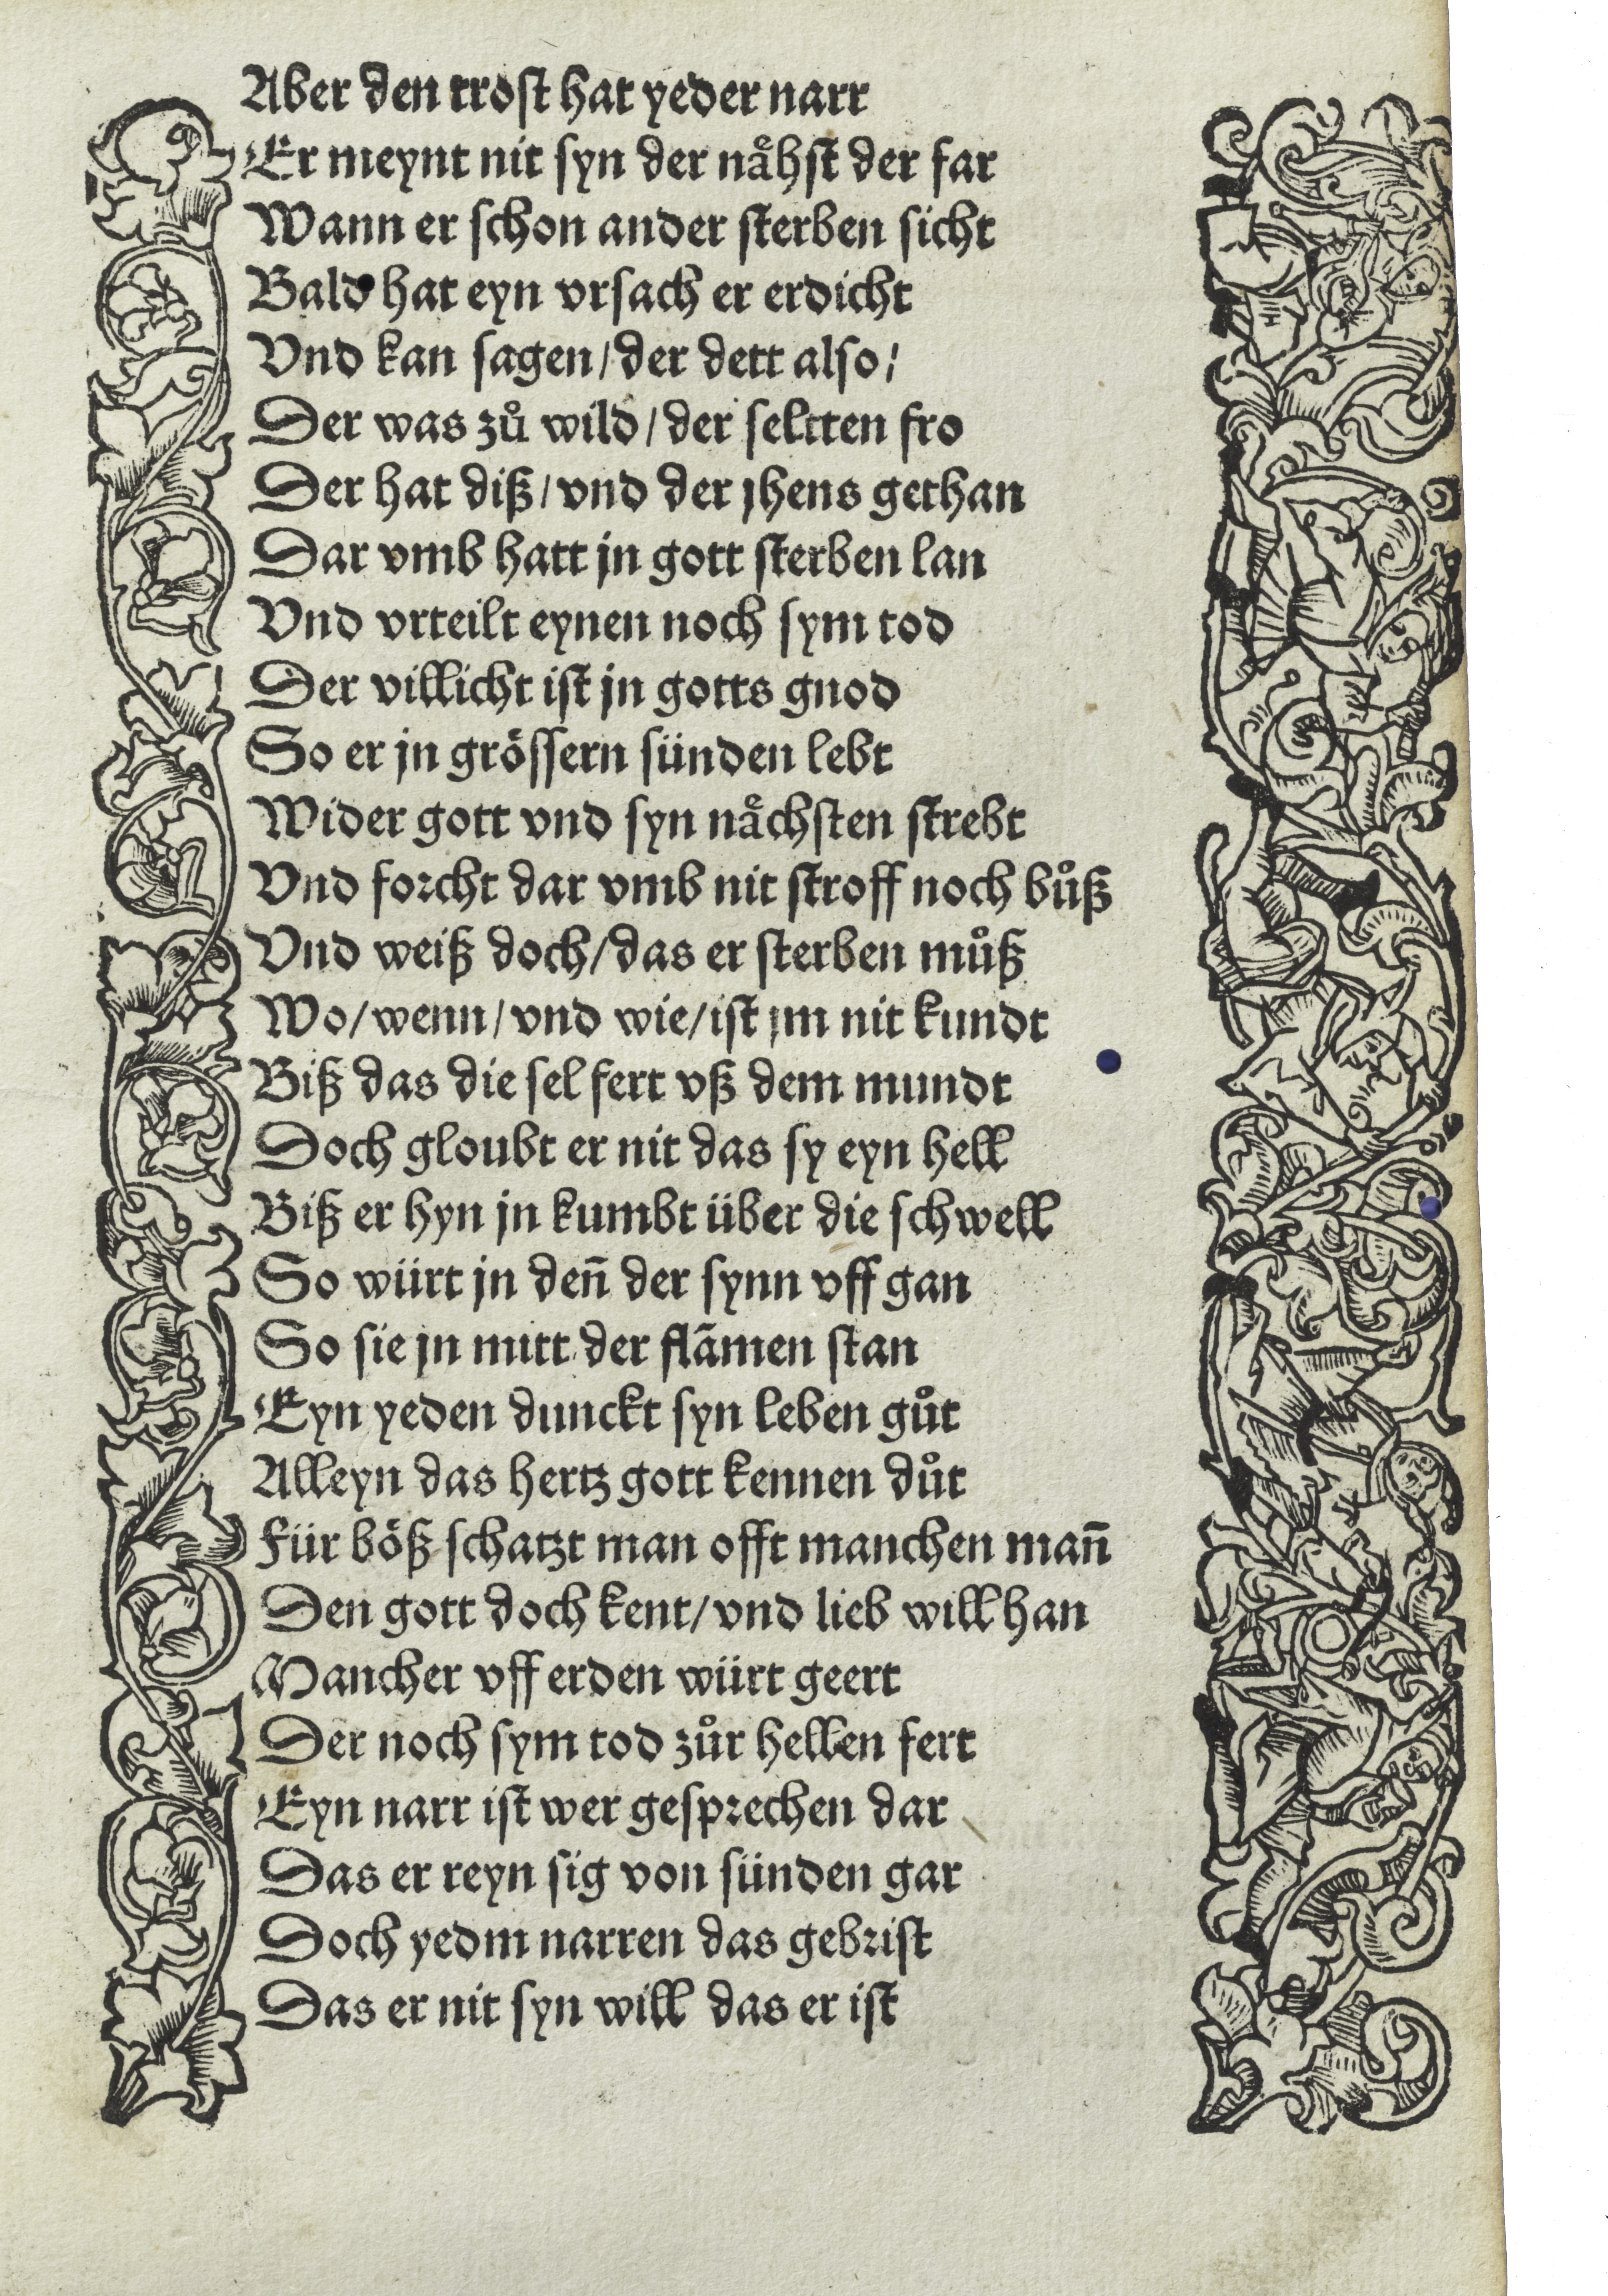 Aber den trost hat yeder narr
Er meynt nit syn der nåhst der far
Wann er schon ander sterben sicht
Bald hat eyn vrsach er erdicht
Vnd kan sagen/der dett also/
Der was zů wild/der seltten fro
Der hat diß/vnd der jhens gethan
Dar vmb hatt jn gott sterben lan
Vnd vrteilt eynen noch sym tod
Der villicht ist jn gotts gnod
So er jn grössern sünden lebt
Wider gott vnd syn nåchsten strebt
Vnd forcht dar vmb nit stroff noch bůß
Vnd weiß doch/das er sterben můß
Wo/wenn/vnd wie/ist jm nit kundt
Biß das die sel fert vß dem mundt
Doch gloubt er nit das sy eyn hell
Biß er hyn jn kumbt über die schwell
So würt jn den̄ der synn vff gan
So sie jn mitt der flāmen stan
Eyn yeden dunckt syn leben gůt
Alleyn das hertz gott kennen důt
Für böß schatzt man offt manchen man̄
Den gott doch kent/vnd lieb will han
Mancher vff erden würt geert
Der noch sym tod zůr hellen fert
Eyn narr ist wer gesprechen dar
Das er reyn sig von sünden gar
Doch yedm narren das gebrist
Das er nit syn will das er ist